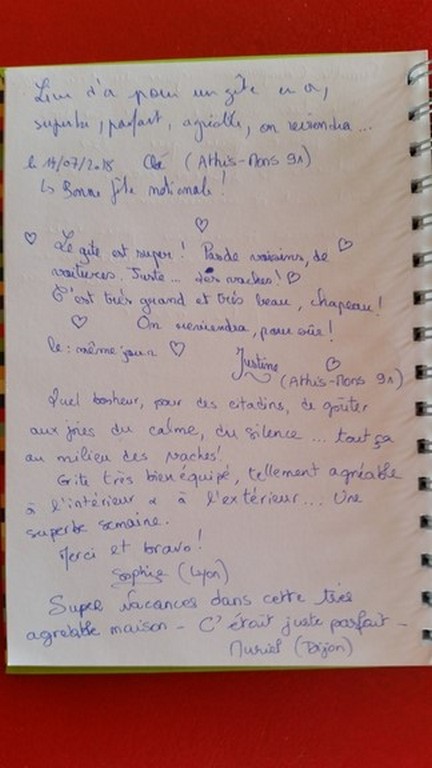 Livre d'or pour un gîte en or,
superbe, parfait, agréable, on reviendra...
le 14/07/2018 Cloé (Athis-Mons 91)
↳ Bonne fête nationale !
Le gite est super ! Pas de voisins, de
voitures. Juste... des vaches !
C'est très grand et très beau, chapeau !
On reviendra, pour sûr !
le : même jour
Justine
(Athis-Mons 91)
Quel bonheur, pour des citadins, de goûter
aux joies du calme, du silence ... tout ça
au milieu des vaches !
Gîte très bien équipé, tellement agréable
à l'intérieur & à l'extérieur... Une
superbe semaine.
Merci et bravo !
Sophie (Lyon)
Super Vacances dans cette très
agréable maison - C'était juste parfait -
Muriel (Dijon)